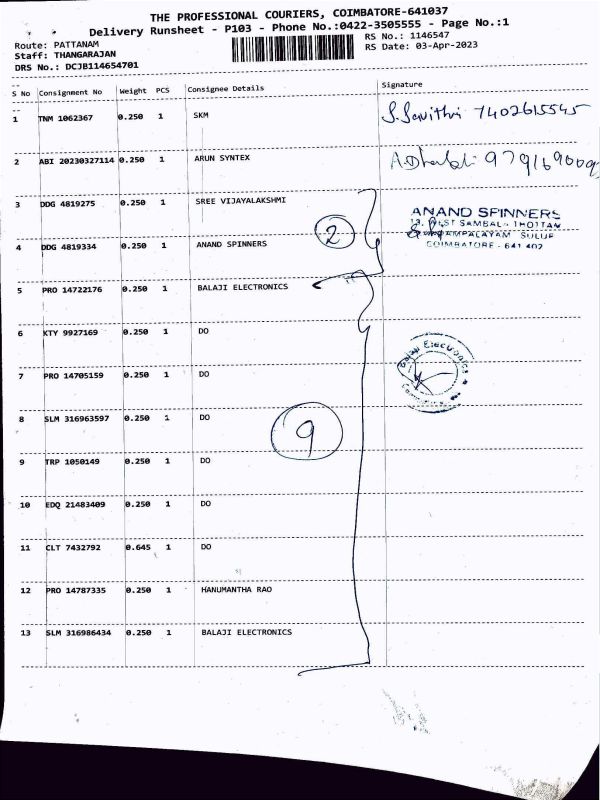 THE PROFESSIONAL COURIERS, COIMBATORE-641037
Delivery Runsheet - P103 - Phone No.:0422-3505555 - Page No.:1
Route: PATTANAM
RS No.: 1146547
Staff: THANGARAJAN
RS Date: 03-Apr-2023
DRS No.: DCJB114654701
S No Consignment No Weight PCS Consignee Details Signature
1 TNM 1062367 0.250 1 SKM S.Savithri 7402615545
2 ABI 20230327114 0.250 1 ARUN SYNTEX
3 DDG 4819275 0.250 1 SREE VIJAYALAKSHMI
2
ANAND SPINNERS
COIMBATORE - 641 402
4 DDG 4819334 0.250 1 ANAND SPINNERS
5 PRO 14722176 0.250 1 BALAJI ELECTRONICS
6 KTY 9927169 0.250 1 DO
Balaji Electronics
7 PRO 14705159 0.250 1 DO
8 SLM 316963597 0.250 1 DO
9
9 TRP 1050149 0.250 1 DO
10 EDQ 21483409 0.250 1 DO
11 CLT 7432792 0.645 1 DO
12 PRO 14787335 0.250 1 HANUMANTHA RAO
13 SLM 316986434 0.250 1 BALAJI ELECTRONICS